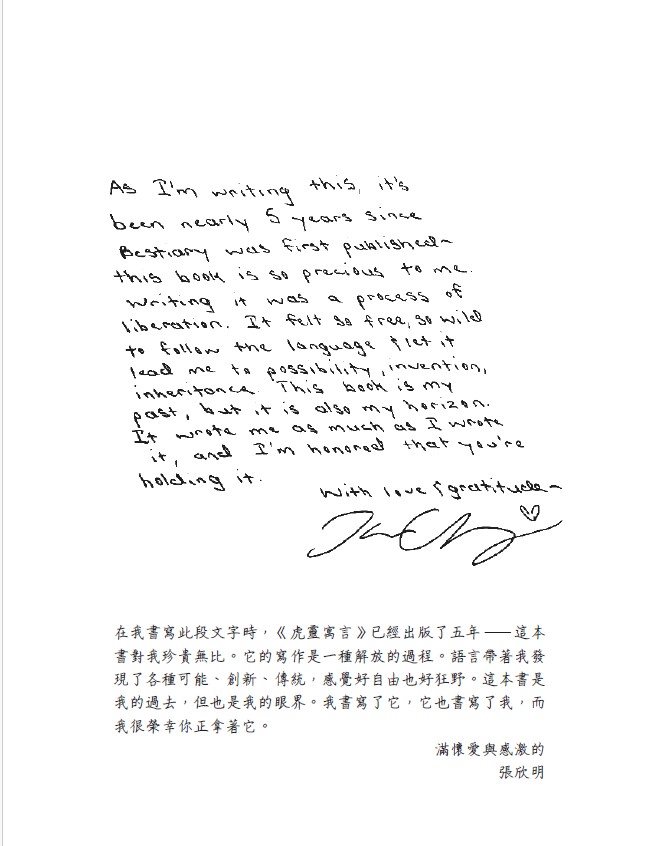 As I'm writing this, it's
been nearly 5 years since
Bestiary was first published—
this book is so precious to me.
Writing it was a process of
liberation. It felt so free, so wild
to follow the language & let it
lead me to possibility, invention,
inheritance. This book is my
past, but it is also my horizon.
It wrote me as much as I wrote
it, and I'm honored that you're
holding it.
With love & gratitude—
在我書寫此段文字時，《虎靈寓言》已經出版了五年——這本
書對我珍貴無比。它的寫作是一種解放的過程。語言帶著我發
現了各種可能、創新、傳統，感覺好自由也好狂野。這本書是
我的過去，但也是我的眼界。我書寫了它，它也書寫了我，而
我很榮幸你正拿著它。
滿懷愛與感激的
張欣明